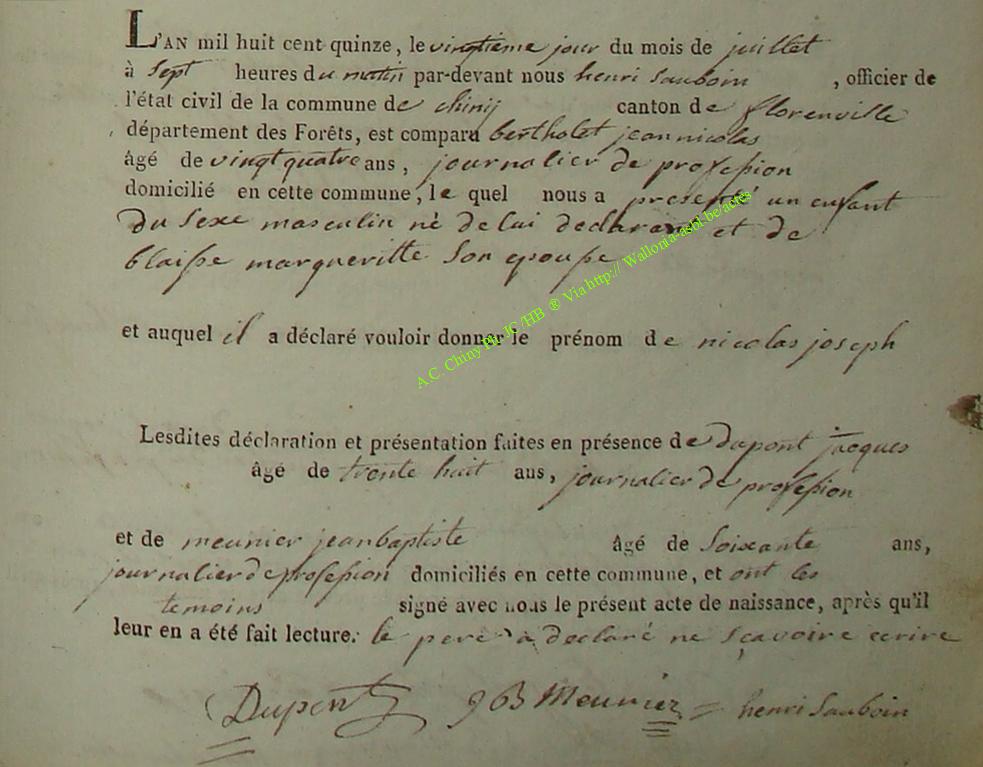 L'AN mil huit cent quinze, le vingtieme jour du mois de juillet
à sept heures du matin par-devant nous henri Sauboin, officier de
l'état civil de la commune de chinij canton de florenville
département des Forêts, est comparu bertholet jean nicolas
âgé de vingt quatre ans, journalier de profession
domicilié en cette commune, le quel nous a presenté un enfant
du sexe masculin né de lui declarant et de
blaisse margueritte son epousse
et auquel il a déclaré vouloir donner le prénom de nicolas joseph
Lesdites déclaration et présentation faites en présence de dupont jacques
âgé de trente huit ans, journalier de profession
et de meunier jean baptiste âgé de soixante ans,
journalier de profession domiciliés en cette commune, et ont les
temoins signé avec nous le présent acte de naissance, après qu'il
leur en a été fait lecture. le pere a declaré ne sçavoire ecrire
Dupont JB Meunier henri Sauboin
A.C. Chiny Ph. JC /HB ® Via http:// Wallonia-asbl.be/actes